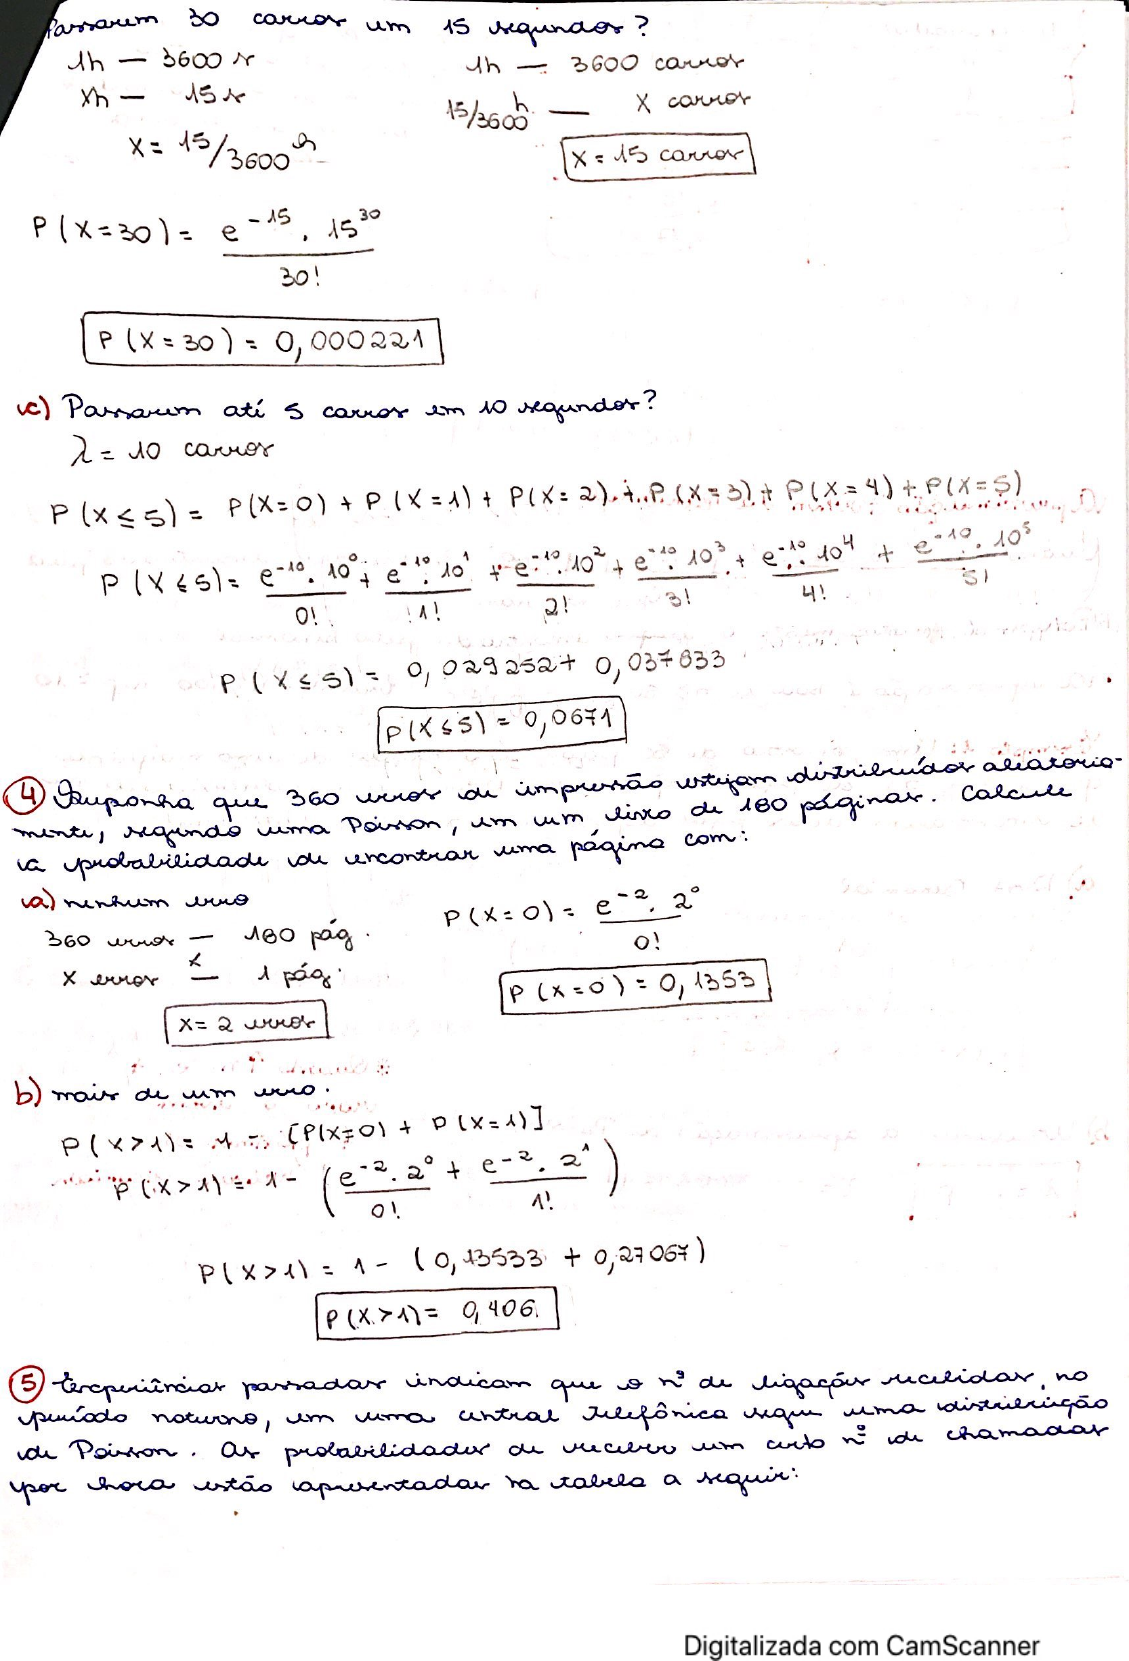 Passarem 30 carros em 15 segundos?
1h — 3600 s
xh — 15 s
x = 15/3600 h
1h — 3600 carros
15/3600 h — x carros
x = 15 carros
P(X=30) = e^-15 . 15^30
30!
P(X=30) = 0,000221
c) Passarem até 5 carros em 10 segundos?
λ = 10 carros
P(X ≤ 5) = P(X=0) + P(X=1) + P(X=2) + P(X=3) + P(X=4) + P(X=5)
P(X ≤ 5) = e^-10 . 10^0 / 0! + e^-10 . 10^1 / 1! + e^-10 . 10^2 / 2! + e^-10 . 10^3 / 3! + e^-10 . 10^4 / 4! + e^-10 . 10^5 / 5!
P(X ≤ 5) = 0,029252 + 0,037833
P(X ≤ 5) = 0,0671
4) Suponha que 360 erros de impressão estejam distribuídos aleatoria-
mente, segundo uma Poisson, em um livro de 180 páginas. Calcule
a probabilidade de encontrar uma página com:
a) nenhum erro
360 erros — 180 pág.
x erros — 1 pág.
x = 2 erros
P(X=0) = e^-2 . 2^0
0!
P(X=0) = 0,1353
b) mais de um erro.
P(X>1) = 1 - [P(X=0) + P(X=1)]
P(X>1) = 1 - (e^-2 . 2^0 / 0! + e^-2 . 2^1 / 1!)
P(X>1) = 1 - (0,13533 + 0,27067)
P(X>1) = 0,406
5) Experiências passadas indicam que o nº de ligações recebidas, no
período noturno, em uma central telefônica segue uma distribuição
de Poisson. As probabilidades de receber um certo nº de chamadas
por hora estão apresentadas na tabela a seguir:
Digitalizada com CamScanner